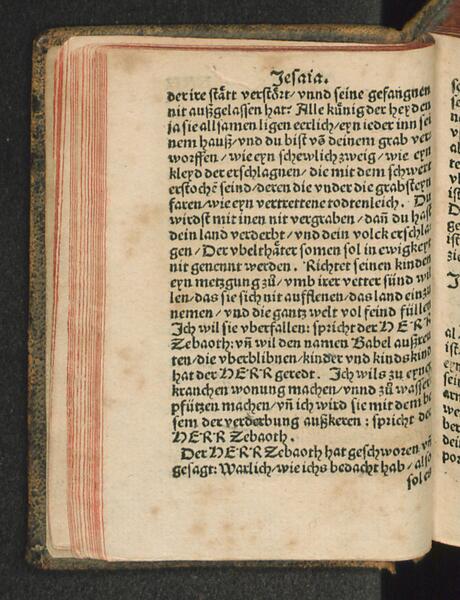 Jesaia.
der ire stått verstõrt / vnnd seine gefangnen
nit außgelassen hat? Alle künig der heyden
ja sie allsamen ligen eerlich / eyn ieder inn sei
nem hauß / vnd du bist võ deinem grab ver
worffen / wie eyn schewlich zweig / wie eyn
kleyd der erschlagnen / die mit dem schwert
erstochẽ seind / deren die vnder die grabsteyn
faren / wie eyn vertrettene todtenleich. Du
wirdst mit inen nit vergraben / dañ du hast
dein land verderbt / vnd dein volck erschla
gen / Der vbelthäter somen sol in ewigkeyt
nit genennt werden. Richtet seinen kinden
eyn metzgung zů / vmb irer vetter sünd wil
len / das sie sich nit aufflenen / das land einzu
nemen / vnd die gantz welt vol feind füllen
Jch wil sie vberfallen: spricht der HERR
Zebaoth: vñ wil den namen Babel außreu
ten / die vberblibnen / kinder vnd kindskind
hat der HERR geredt. Jch wils zu eyner
kranchen wonung machen / vnnd zů wasser
pfützen machen / vñ ich wird sie mit dem be
sem der verderbung außkeren: spricht der
HERR Zebaoth.
Der HERR Zebaoth hat geschworen vñ
gesagt: Warlich / wie ichs bedacht hab / also
sol es